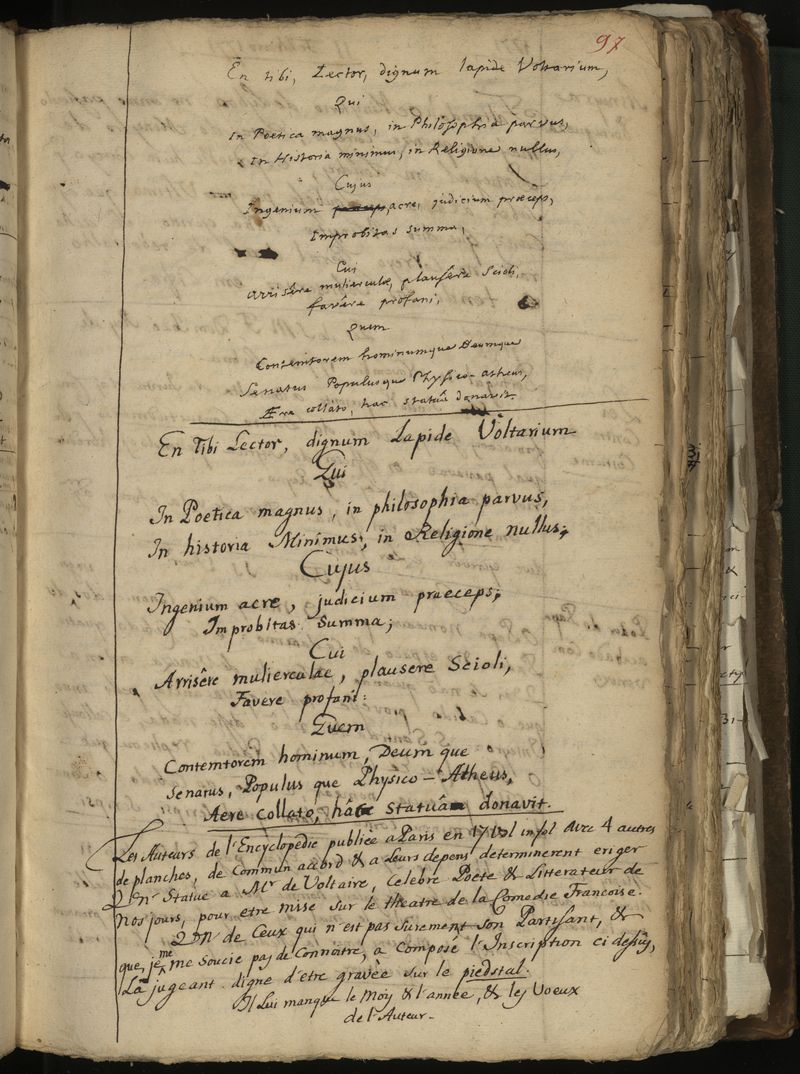 97
En tibi, Lector, dignum lapide Voltarium,
Qui
In Poetica magnus, in Philosophia parvus,
In Historia minimus, in Religione nullus,
Cujus
Ingenium acre, judicium præceps,
Improbitas summa,
Cui
Arrisêre mulierculæ, plausêre Scioli,
favêre profani,
Quem
Contemtorem hominumque Deumque
Senatus Populusque Physico-atheus,
Ære collato, hac statuâ donavit.
En Tibi Lector, dignum Lapide Voltarium
Qui
In Poetica magnus, in philosophia parvus,
In historia Minimus, in Religione nullus;
Cujus
Ingenium acre, judicium praeceps;
Improbitas Summa;
Cui
Arrisêre mulierculae, plausere Scioli,
Favere profani:
Quem
Contemtorem hominum, Deum que
Senatus, Populus que Physico-Atheus,
Aere collato, hâc statuâ donavit.
Les Auteurs de l'Encyclopédie publiée a Paris en 17 vol in fol avec 4 autres
de planches, de Commun accord & a Leurs depens determinerent eriger
Une Statue a Mr. de Voltaire, Celebre Poête & Litterateur de
Nos jours, pour etre mise sur le theatre de la Comedie Francoise.
Un de Ceux qui n'est pas Surement son Partisant, &
que je me me Soucie pas de Connoitre, a Composé l'Inscription ci dessus,
La jugeant digne d'etre gravée sur le piedstal.
Il Lui manque le Mois & l'année, & les Voeux
de l'Auteur.